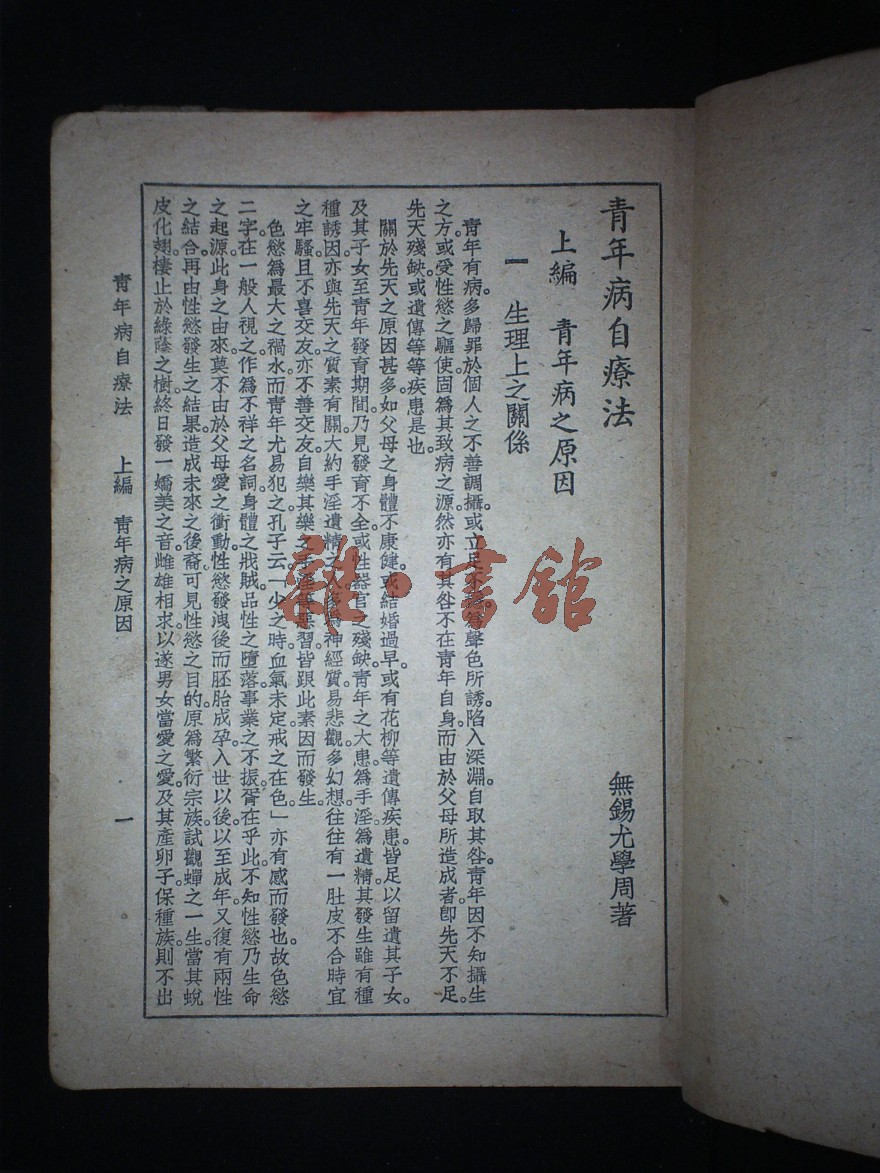 青年病自療法
無錫尤學周著
上編　青年病之原因
一　生理上之關係
青年有病。多歸罪於個人之不善調攝。或立足不為聲色所誘。陷入深淵。自取其咎。青年因不知攝生
之方。或受性慾之驅使。固為其致病之源。然亦有其咎不在青年自身。而由於父母所造成者。卽先天不足。
先天殘缺。或遺傳等等疾患是也。
關於先天之原因甚多。如父母之身體不康健。或結婚過早。或有花柳等遺傳疾患。皆足以留遺其子女。
及其子女至青年發育期間。乃見發育不全。或性器官之殘缺。青年之大患。為手淫。為遺精。其發生雖有種
種誘因。亦與先天之質素有關。大約手淫遺精之人。多為神經質。易悲觀。多幻想。往往有一肚皮不合時宜
之牢騷。且不喜交友。亦不善交友。自樂其樂之手淫等惡習。皆跟此素因而發生。
色慾為最大之禍水。而青年尤易犯之。孔子云。「少之時。血氣未定。戒之在色。」亦有感而發也。故色慾
二字。在一般人視之。作為不祥之名詞。身體之戕賊。品性之墮落。事業之不振。胥在乎此。不知性慾乃生命
之起源。此身之由來。莫不由於父母愛之衝動。性慾發洩後。而胚胎成孕。入世以後。以至成年。又復有兩性
之結合。再由性慾發生之結果。造成未來之後裔。可見性慾之目的。原為繁衍宗族。試觀蟬之一生。當其蛻
皮化翅。棲止於綠蔭之樹。終日發一嬌美之音。雌雄相求。以遂男女當愛之愛。及其產卵子。保種族。則不出
青年病自療法　上編　青年病之原因　一
雜·書舘